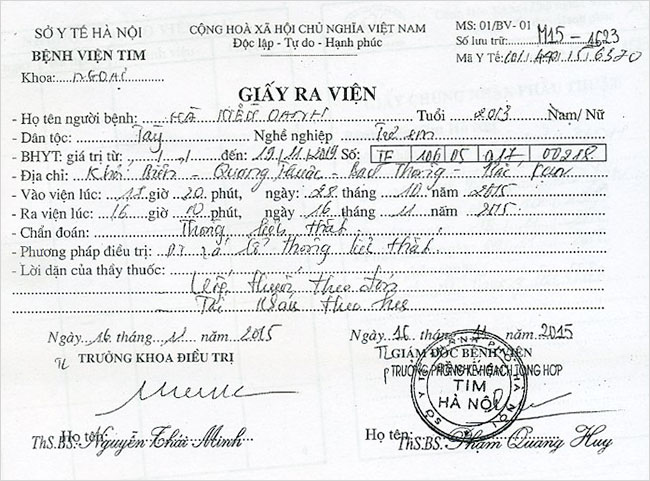 SỞ Y TẾ HÀ NỘI
BỆNH VIỆN TIM
Khoa: NGOẠI
CỘNG HOÀ XÃ HỘI CHỦ NGHĨA VIỆT NAM
Độc lập - Tự do - Hạnh phúc
MS: 01/BV- 01
Số lưu trữ: M15 - 1623
Mã Y Tế:
GIẤY RA VIỆN
- Họ tên người bệnh: HÀ KIỀU OANH Tuổi 2013 Nam/ Nữ
- Dân tộc: Tày Nghề nghiệp Trẻ em
- BHYT: giá trị từ: / / đến: 19/11/2019 Số: TE 106 05 017 00218
- Địa chỉ: Quang Thuận - Bạch Thông - Bắc Kạn
- Vào viện lúc: 18 giờ 20 phút, ngày: 28 tháng 10 năm 2015
- Ra viện lúc: 16 giờ 10 phút, ngày: 16 tháng 11 năm 2015
- Chẩn đoán: Thông liên thất.
- Phương pháp điều trị: vá lỗ thông liên thất.
- Lời dặn của thầy thuốc:
Uống thuốc theo đơn
Tái khám theo hẹn
Ngày 16 tháng 11 năm 2015
TL TRƯỞNG KHOA ĐIỀU TRỊ
Họ tên:
ThS.BS. Nguyễn Thái Minh
Ngày 16 tháng 11 năm 2015
TL GIÁM ĐỐC BỆNH VIỆN
TRƯỞNG PHÒNG KẾ HOẠCH TỔNG HỢP
BỆNH VIỆN
TIM
HÀ NỘI
Họ tên:
ThS.BS. Phạm Quang Huy